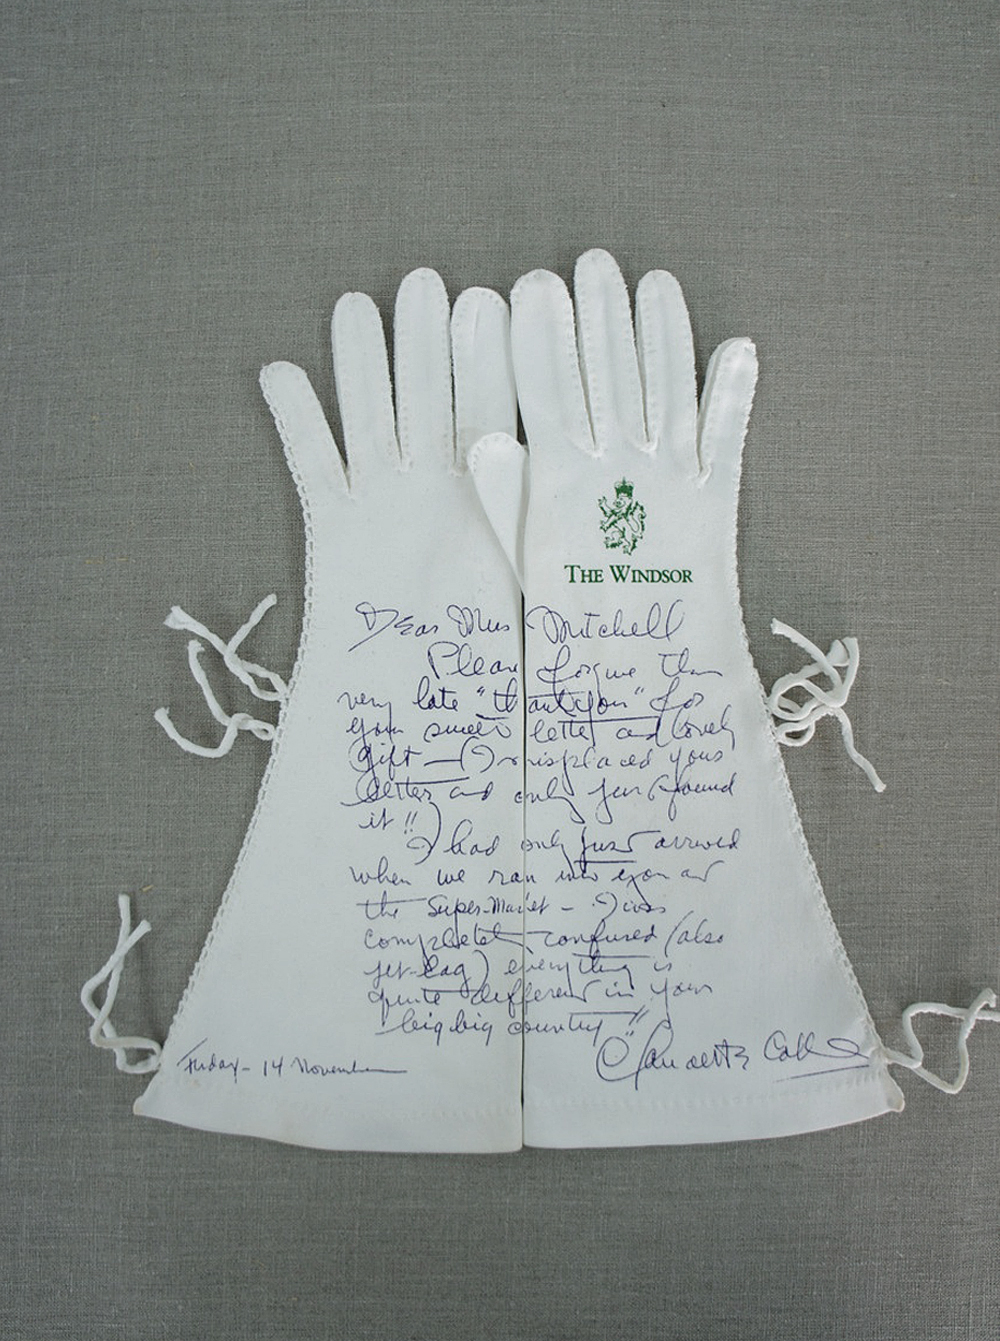 THE WINDSOR
Dear Mrs Mitchell
Please forgive this
very late "thank you" for
your sweet letter and lovely
gift — (I misplaced your
letter and only just found
it!!)
I had only just arrived
when we ran into you at
the Super-Market – I was
completely confused (also
jet-lag) everything is
quite different in your
"big big country"!
Friday – 14 November
Claudette Colb